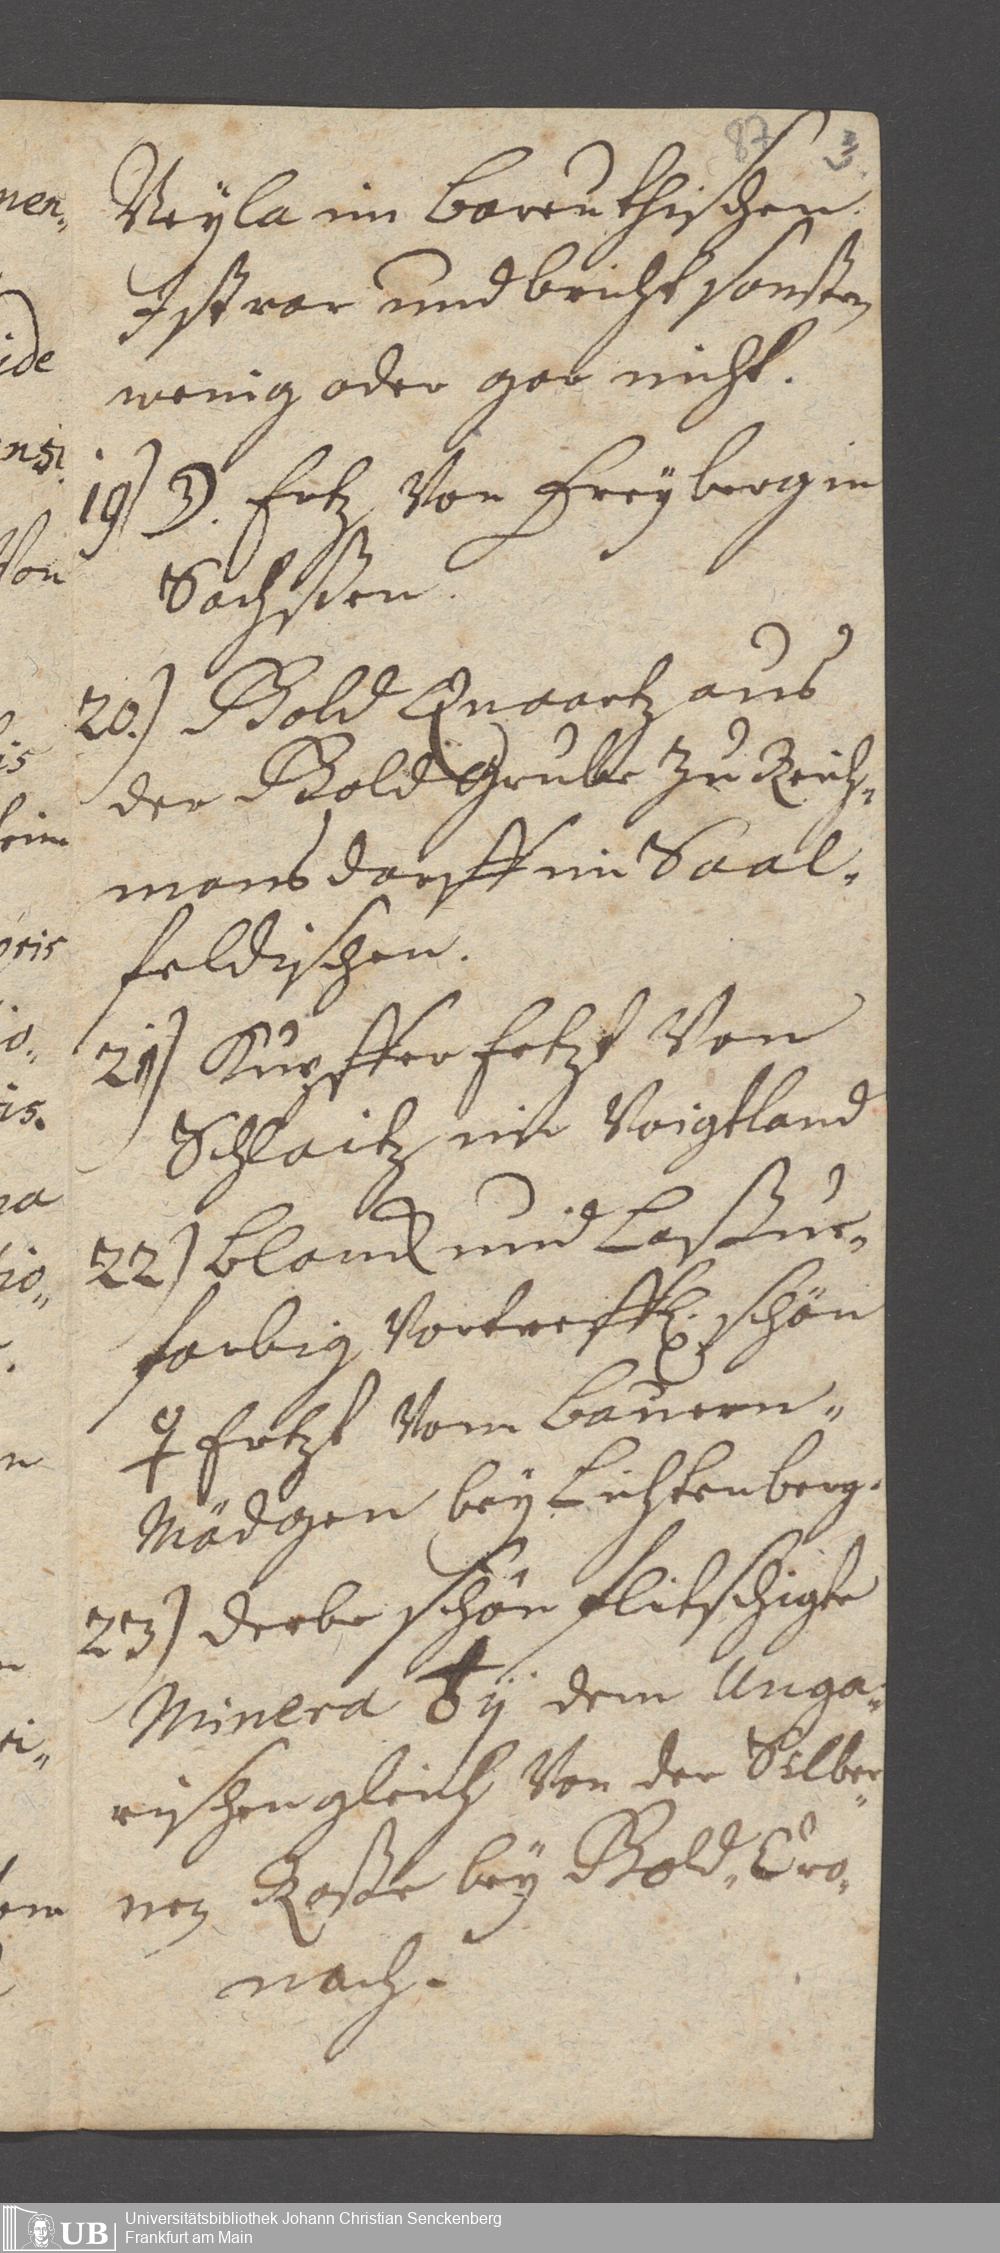 87 3.
Neyla im Bareuthischen.
Ist rar und bricht sonsten
wenig oder gar nicht.
19) ☽. Ertz von Freyberg in
Sachssen.
20.) Gold Quaartz aus
der Gold Grube zu Reich-
mansdorff im Saal-
feldischen.
21) Kupffer Ertzt von
Schlaitz im Voigtland
22) blau und Lassur-
farbig vortreffl. schön
♀ Ertzt vom Bauern-
Mädgen bey Lichtenberg.
23) derbe schön flitschigte
Minera ♁ij dem Unga-
rischen gleich von der Silber-
nen Rosse bey Gold-Cro-
nach.
Universitätsbibliothek Johann Christian Senckenberg
Frankfurt am Main
UB